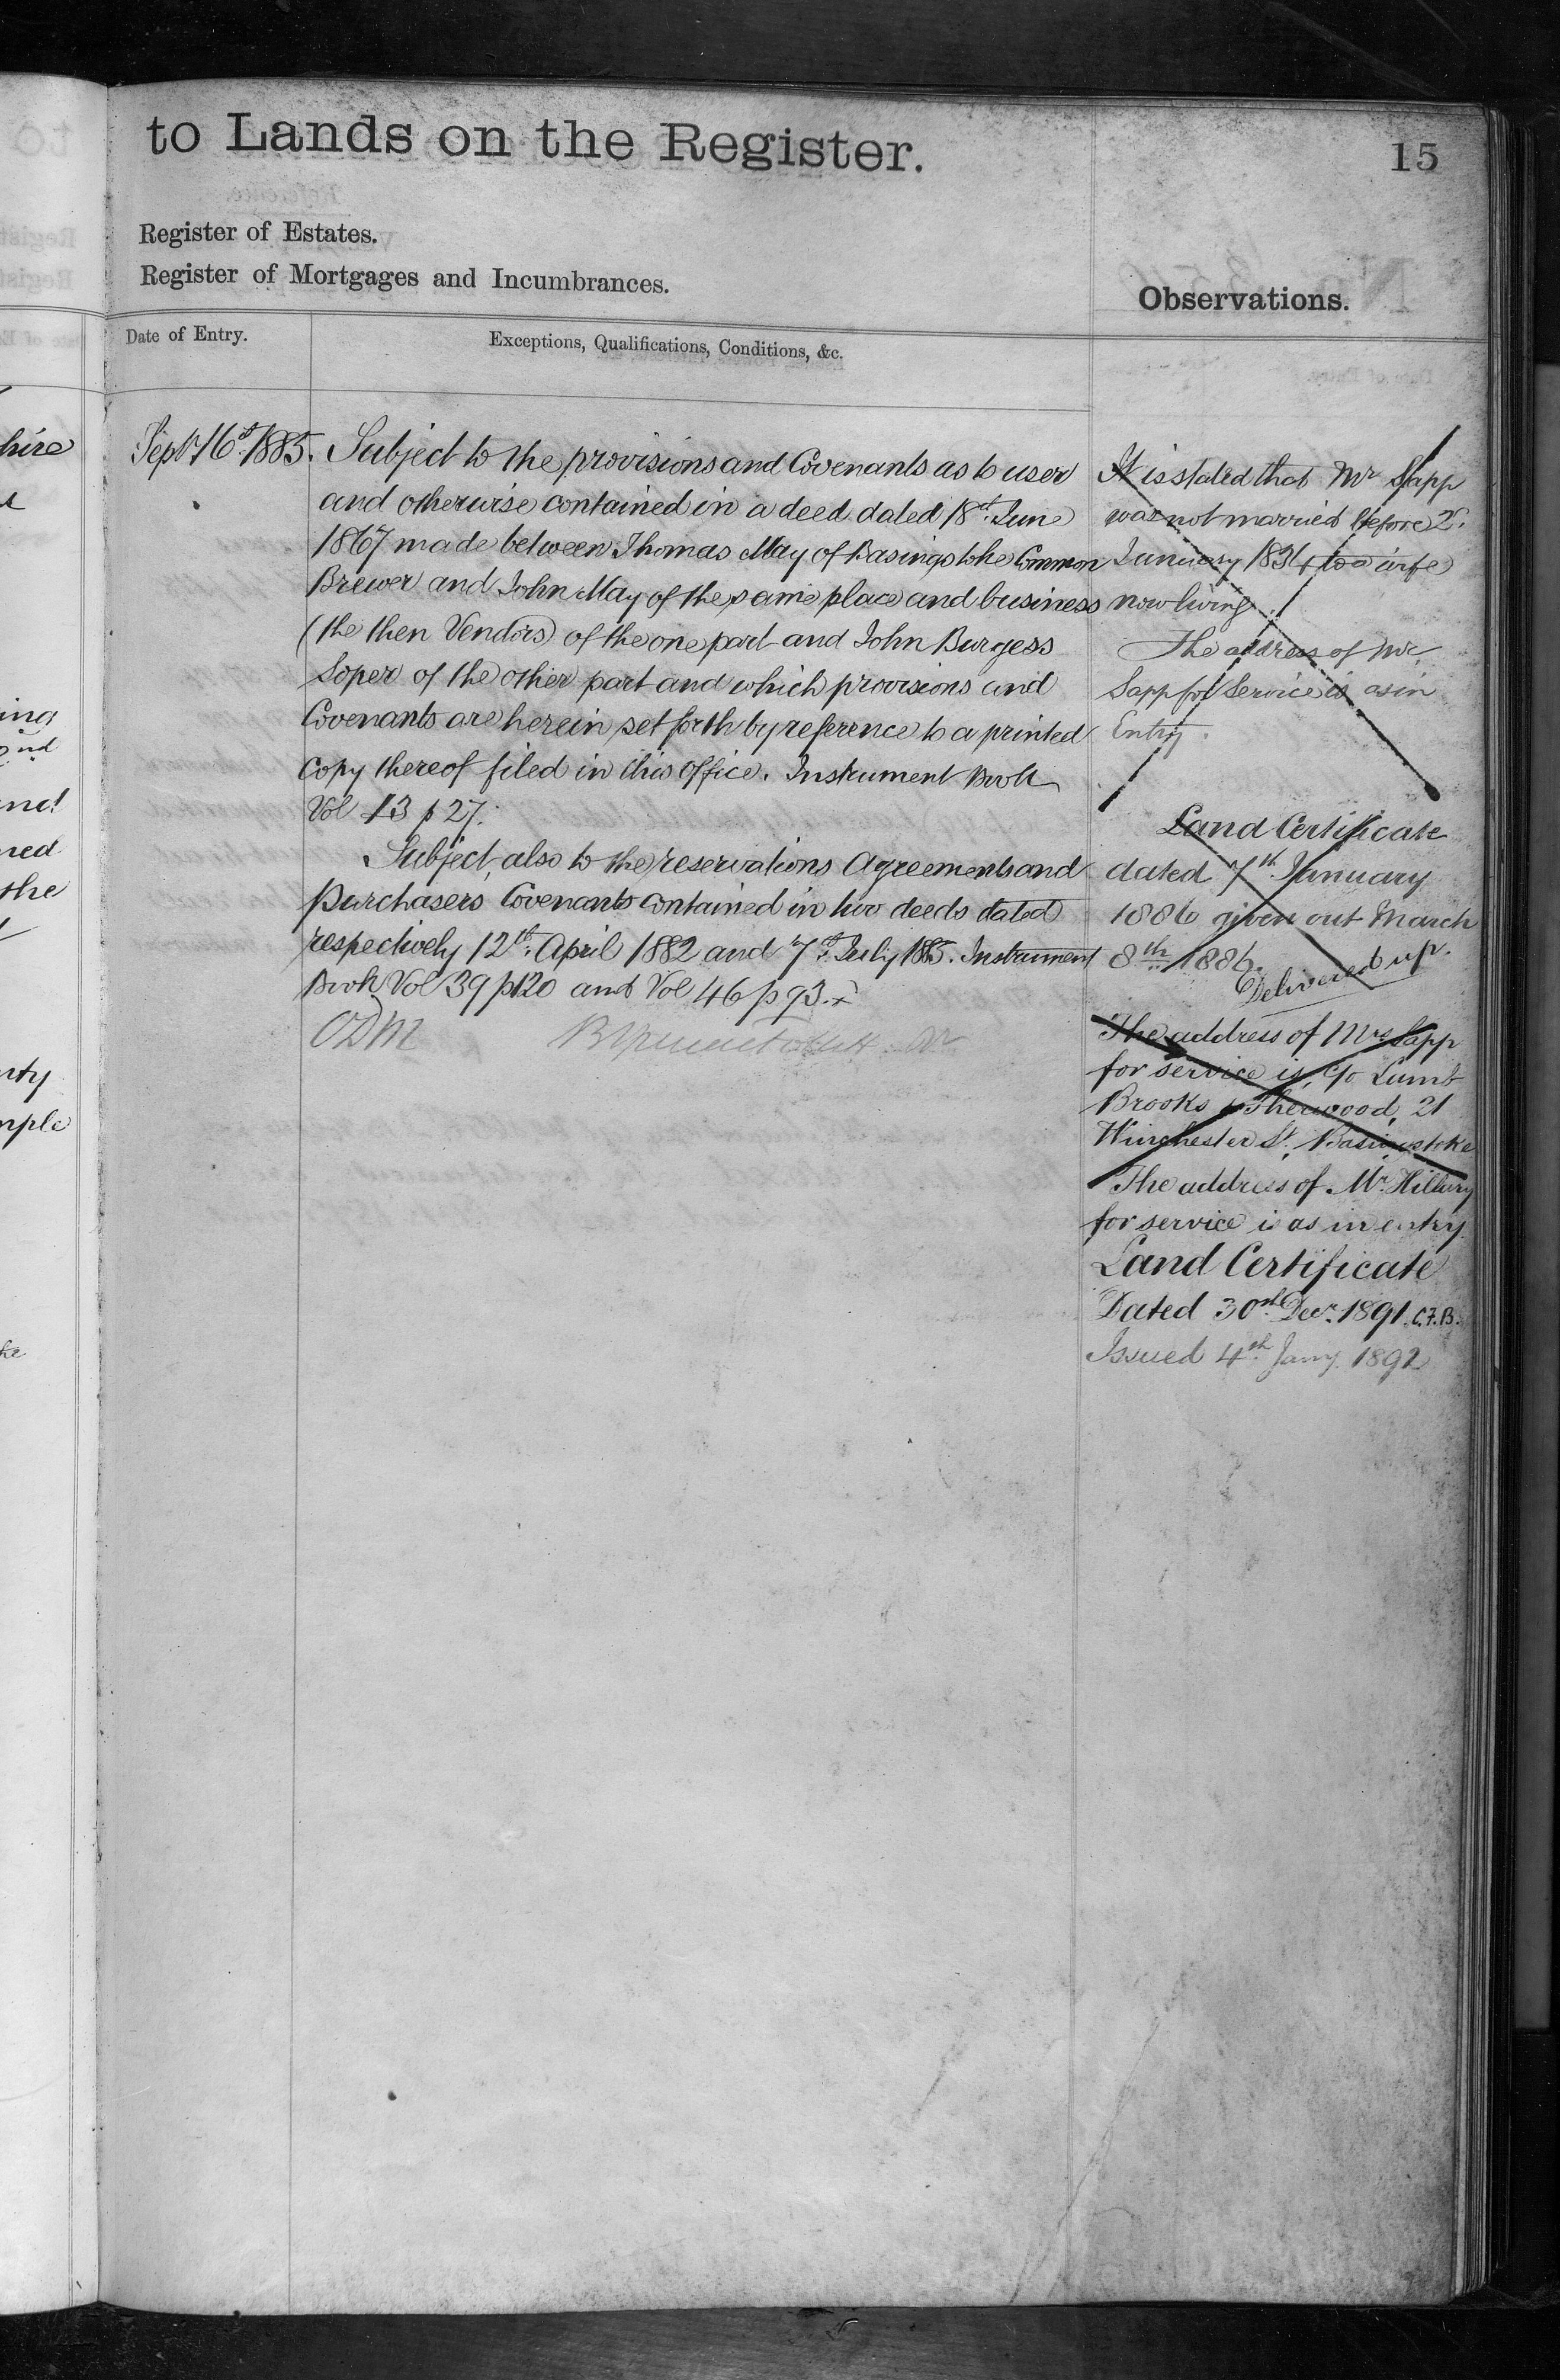 to Lands on the Register.
15
Register of Estates.
Register of Mortgages and Incumbrances.
Observations.
Date of Entry.
Exceptions, Qualifications, Conditions, &c.
Sept 16th 1885.
Subject to the provisions and Covenants as to user
and otherwise contained in a deed dated 18th June
1867 made between Thomas May of Basingstoke Common
Brewer and John May of the same place and business
(the then Vendors) of the one part and John Burgess
Soper of the other part and which provisions and
Covenants are herein set forth by reference to a printed
Copy thereof filed in this Office. Instrument Book
Vol 13 p 27.
Subject also to the reservations Agreements and
Purchasers Covenants contained in two deeds dated
respectively 12th April 1882 and 7th July 1885. Instrument
Book Vol 39 p 120 and Vol 46 p 93.
It is stated that Mr Sapp
was not married before 2d
January 1834 to a wife
now living.
The address of Mr
Sapp for Service is as in
Entry.
Land Certificate
dated 7th January
1886 given out March
8th 1886.
Delivered up.
The address of Mrs Sapp
for service is, c/o Lamb
Brooks & Sherwood, 21
Winchester St. Basingstoke
The address of Mr. Hillary
for service is as in entry.
Land Certificate
Dated 30th Decr. 1891. C.F.B.
Issued 4th Jany. 1892